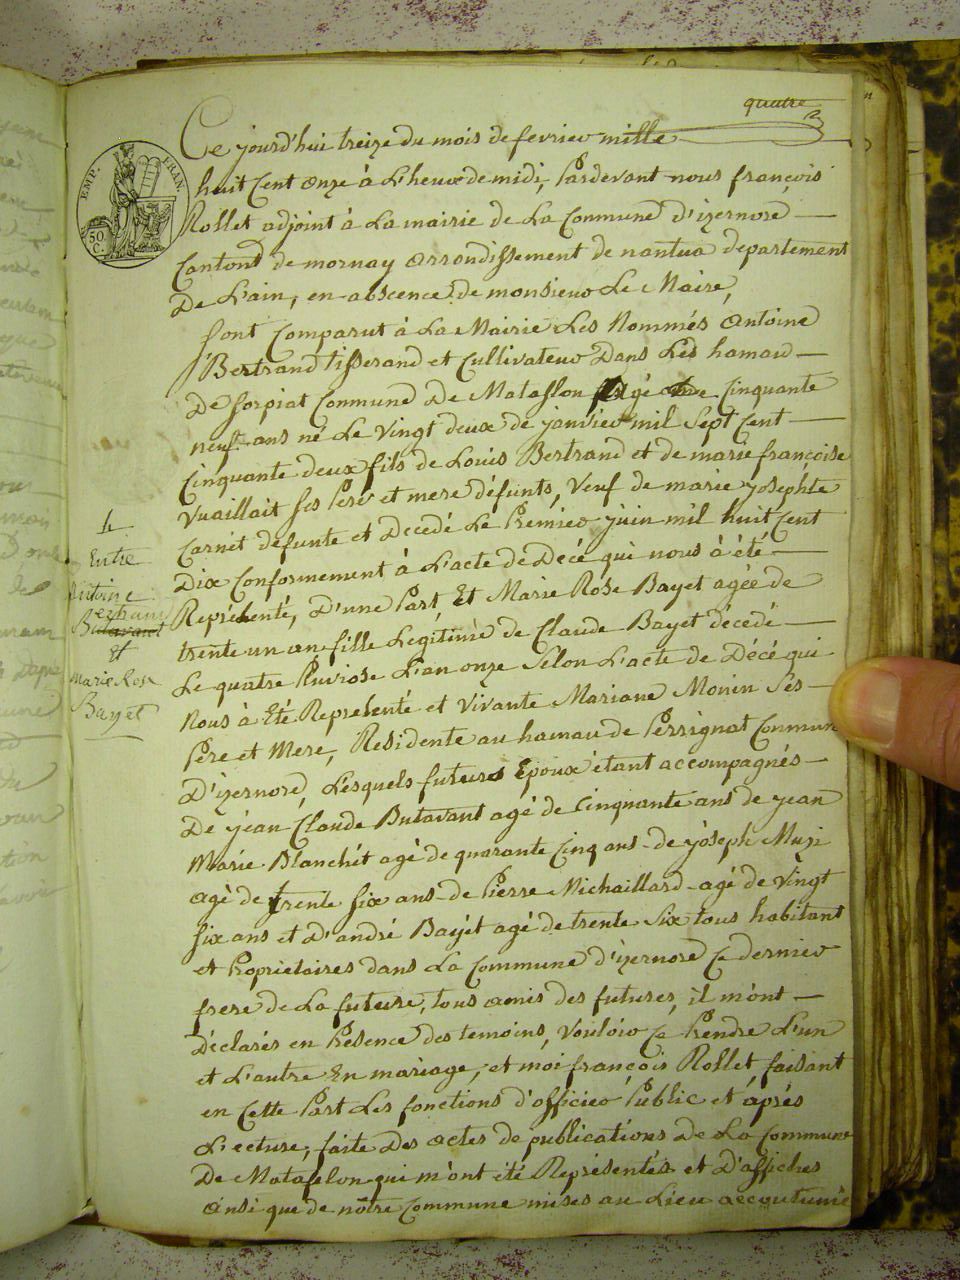 quatre
EMP. FRAN.
50 C.
Ce jourd'hui treize du mois de fevrier mille
huit Cent onze à L'heure de midi, Pardevant nous françois
Rollet adjoint à La mairie de La Commune d'izernore
Canton de mornay arrondissement de nantua departement
De L'ain, en abscence de monsieur Le Maire,
sont Comparut à La Mairie Les Nommés Antoine
Bertrand tisserand et Cultivateur Dans Les hamau
De Sorpiat Commune De Mataflon agé de Cinquante
neuf ans né Le Vingt deux de janvier mil Sept Cent
Cinquante deux fils de Louis Bertrand et de marie françoise
Vuaillait Ses Pere et mere défunts, Veuf de marie josephte
Carnet defunte et Decedé Le Premier juin mil huit Cent
Dix Conformement à L'acte de Décé qui nous à été
Représenté, D'une Part Et Marie Rose Bayet agée de
trente un an fille Legitime de Claude Bayet décédé
Le quatre Pluviose L'an onze Selon L'acte de Décé qui
Nous à Eté Representé et Vivante Mariane Monin Ses
Pere et Mere, Residente au hamau de Perrignat Commune
D'izernore, Lesquels futures Epoux étant accompagnés
De jean Claude Butavant agé de Cinquante ans de jean
Marie Blanchit agé de quarante Cinq ans de joseph
agé de trente Six ans de Pierre Michaillard agé de Vingt
Six ans et D'andré Bayét agé de trente Six tous habitant
et Proprietaires dans La Commune d'izernore Ce dernier
frere de La future, tous amis des futures, il m'ont
Déclarés en Présence des temoins, Vouloir Ce Prendre L'un
et L'autre En mariage, et moi françois Rollet, faisant
en Cette Part Les fonctions d'officier Public et áprés
L'ecture, faite Des actes de publications De La Commune
De Matafelon qui m'ont été Représentés et D'affiches
ainsi que de nôtre Commune mises au Lieu accoutumé
4
Entre
Antoine
Bertrand
Butavant
Et
Marie Rose
Bayet